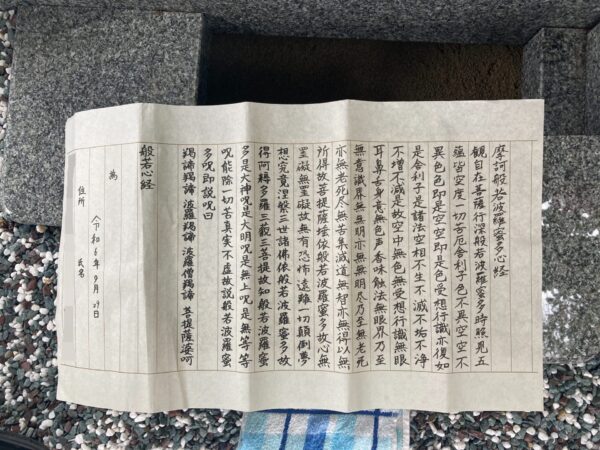 摩訶般若波羅蜜多心経
観自在菩薩行深般若波羅蜜多時照見五
蘊皆空度一切苦厄舎利子色不異空空不
異色色即是空空即是色受想行識亦復如
是舎利子是諸法空相不生不滅不垢不浄
不増不減是故空中無色無受想行識無眼
耳鼻舌身意無色声香味触法無眼界乃至
無意識界無無明亦無無明尽乃至無老死
亦無老死尽無苦集滅道無智亦無得以無
所得故菩提薩埵依般若波羅蜜多故心無
罣礙無罣礙故無有恐怖遠離一切顛倒夢
想究竟涅槃三世諸佛依般若波羅蜜多故
得阿耨多羅三藐三菩提故知般若波羅蜜
多是大神呪是大明呪是無上呪是無等等
呪能除一切苦真実不虚故説般若波羅蜜
多呪即説呪曰
羯諦羯諦 波羅羯諦 波羅僧羯諦 菩提薩婆呵
般若心経
為
令和6年9月29日
住所 氏名